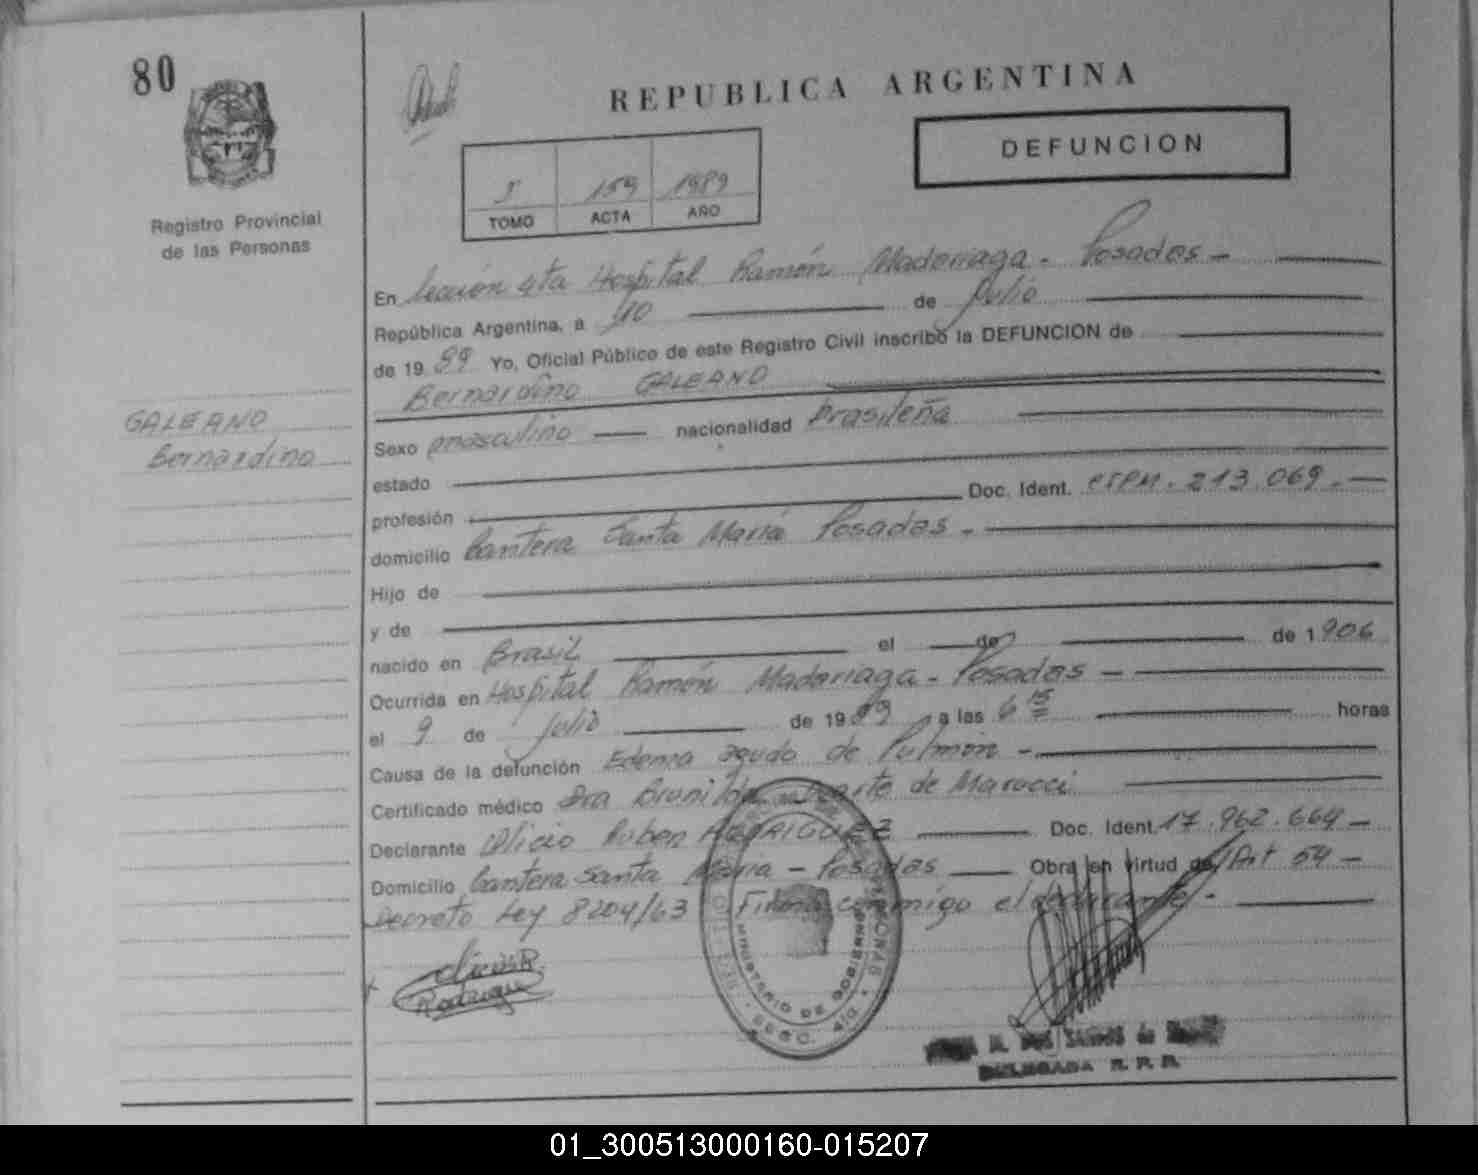 80
REPUBLICA ARGENTINA
DEFUNCION
I 159 1989
TOMO ACTA AÑO
Registro Provincial
de las Personas
En Sección 4ta Hospital Ramón Madariaga - Posadas -
República Argentina, a 10 de Julio
de 19 89 Yo, Oficial Público de este Registro Civil inscribo la DEFUNCION de
Bernardino GALEANO
GALEANO
Bernardino
Sexo masculino nacionalidad brasileña
estado
profesión Doc. Ident. 213.069.-
domicilio Cantera Santa María Posadas -
Hijo de
y de
nacido en Brasil el de de 1906
Ocurrida en Hospital Ramón Madariaga - Posadas -
el 9 de Julio de 1989 a las 6 15 horas
Causa de la defunción Edema agudo de Pulmón -
Certificado médico Dra Brunilda de Marucci
Declarante Alicio Ruben Doc. Ident. 17.962.664 -
Domicilio Cantera Santa María - Posadas Obra en virtud de Art 54 -
Decreto Ley 8204/63 Firma conmigo el declarante -
Alicio R.
Rodriguez
MINISTERIO DE GOBIERNO
SECC. 4ta
DELEGADA R. P. P.
01_300513000160-015207